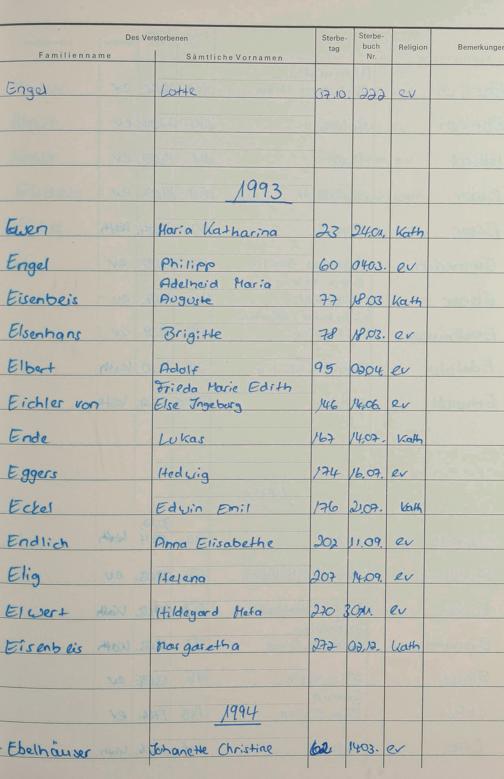 Des Verstorbenen Sterbe- tag Sterbe- buch Nr. Religion Bemerkungen
Familienname Sämtliche Vornamen
Engel Lotte 07.10. 222 ev
1993
Ewen Maria Katharina 23 24.01. Kath
Engel Philipp 60 04.03. ev
Adelheid Maria
Eisenbeis Auguste 77 18.03 Kath
Elsenhans Brigitte 78 18.03. ev
Elbert Adolf 95 02.04. ev
Frieda Marie Edith
Eichler von Else Ingeburg 146 14.06. ev
Ende Lukas 167 14.07. Kath
Eggers Hedwig 174 16.07. ev
Eckel Edwin Emil 176 21.07. Kath
Endlich Anna Elisabethe 202 11.09. ev
Elig Helena 207 14.09. ev
Elwert Hildegard Meta 270 30.11. ev
Eisenbeis Margaretha 272 02.12. Kath
1994
Ebelhäuser Johanette Christine 62 14.03. ev